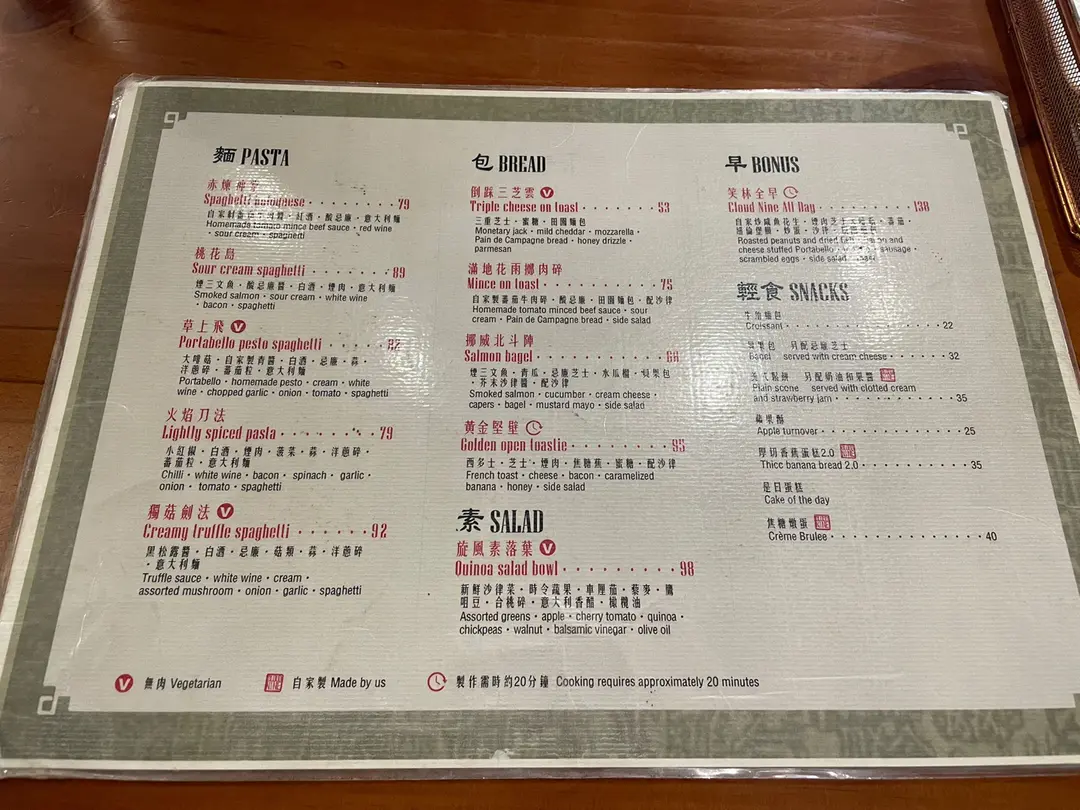 麵 PASTA
Spaghetti bolognese 79
Homemade tomato mince beef sauce · red wine
· sour cream · spaghetti
桃花島
Sour cream spaghetti 89
煙三文魚 · 酸忌廉醬 · 白酒 · 煙肉 · 意大利麵
Smoked salmon · sour cream · white wine
· bacon · spaghetti
草上飛 V
Portabello pesto spaghetti
大啡菇 · 自家製青醬 · 白酒 · 忌廉 · 蒜 ·
洋蔥碎 · 蕃茄粒 · 意大利麵
Portabello · homemade pesto · cream · white
wine · chopped garlic · onion · tomato · spaghetti
火焰刀法
Lightly spiced pasta 79
小紅椒 · 白酒 · 煙肉 · 菠菜 · 蒜 · 洋蔥碎 ·
蕃茄粒 · 意大利麵
Chilli · white wine · bacon · spinach · garlic ·
onion · tomato · spaghetti
獨菇劍法 V
Creamy truffle spaghetti 92
黑松露醬 · 白酒 · 忌廉 · 菇類 · 蒜 · 洋蔥碎
· 意大利麵
Truffle sauce · white wine · cream ·
assorted mushroom · onion · garlic · spaghetti
包 BREAD
倒踩三芝雲 V
Triple cheese on toast 53
三重芝士 · 蜜糖 · 田園麵包
Monetary jack · mild cheddar · mozzarella ·
Pain de Campagne bread · honey drizzle ·
parmesan
滿地花雨擲肉碎
Mince on toast 75
自家製蕃茄牛肉碎 · 酸忌廉 · 田園麵包 · 配沙律
Homemade tomato minced beef sauce · sour
cream · Pain de Campagne bread · side salad
挪威北斗陣
Salmon bagel 68
煙三文魚 · 青瓜 · 忌廉芝士 · 水瓜榴 · 貝果包
· 芥末沙律醬 · 配沙律
Smoked salmon · cucumber · cream cheese ·
capers · bagel · mustard mayo · side salad
黃金堅壁
Golden open toastie 95
西多士 · 芝士 · 煙肉 · 焦糖蕉 · 蜜糖 · 配沙律
French toast · cheese · bacon · caramelized
banana · honey · side salad
素 SALAD
旋風素落葉 V
Quinoa salad bowl 98
新鮮沙律菜 · 時令蔬果 · 車厘茄 · 藜麥 · 鷹
咀豆 · 合桃碎 · 意大利香醋 · 橄欖油
Assorted greens · apple · cherry tomato · quinoa ·
chickpeas · walnut · balsamic vinegar · olive oil
早 BONUS
笑林全早
Cloud Nine All Day 138
Roasted peanuts and dried fish · bacon and
cheese stuffed Portabello · sausage ·
scrambled eggs · side salad · toast
輕食 SNACKS
牛角麵包
Croissant 22
貝果包 另配忌廉芝士
Bagel served with cream cheese 32
英式鬆餅 另配奶油和果醬
Plain scone served with clotted cream
and strawberry jam 35
蘋果酥
Apple turnover 25
厚切香蕉蛋糕2.0
Thicc banana bread 2.0 35
是日蛋糕
Cake of the day
焦糖燉蛋
Crème Brulee 40
V 無肉 Vegetarian
自家製 Made by us
製作需時約20分鐘 Cooking requires approximately 20 minutes